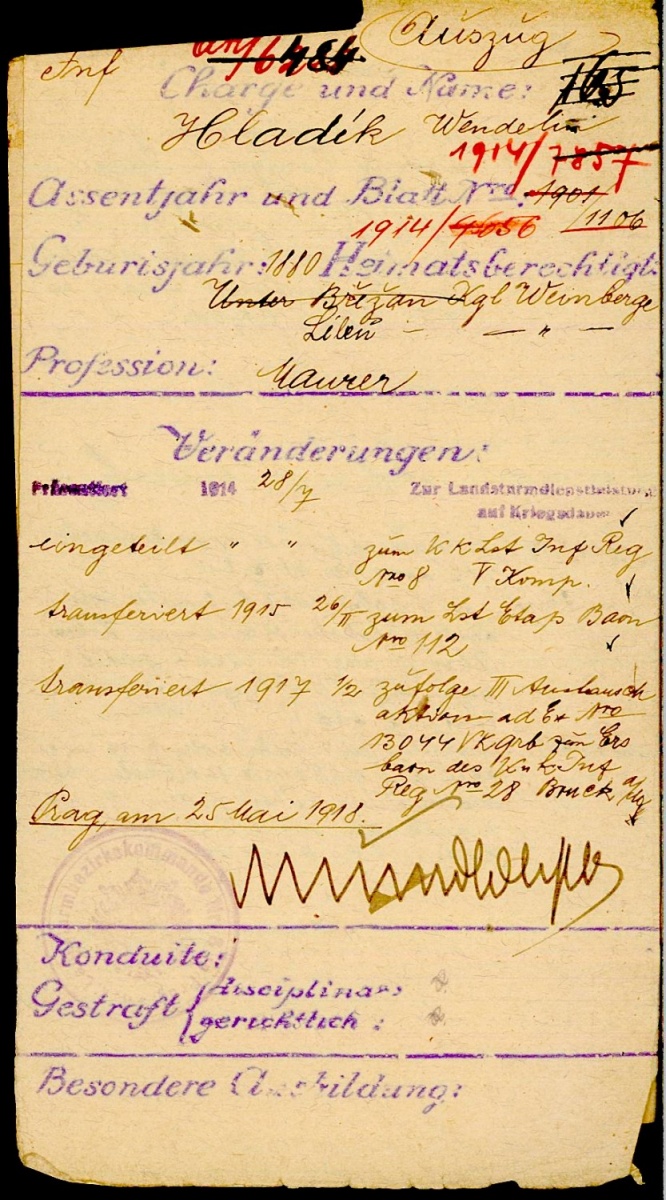 Auszug
Inf
Charge und Name:
Hladík Wendelin
1914/7857
Assentjahr und Blatt Nro: 1901
/1106
1914/4656
Geburtsjahr: 1880 Heimatsberechtigt:
Unter Břežan Kgl Weinberge
— " —
Profession: Maurer
Veränderungen:
Präsentiert 1914 28/7 Zur Landsturmdienstleistung
auf Kriegsdauer
eingeteilt " " zum KK Lst Inf Reg
Nro 8 V Komp.
transferiert 1915 26/II zum Lst Etap Baon
Nro 112
transferiert 1917 1/2 zufolge III Austausch
aktion ad Ex Nro
13044 VK grb zum Ers
baon des K u k Inf
Reg Nro 28 Bruck a/Mg
Prag am 25 Mai 1918.
Konduite:
Gestraft disciplinar:
gerichtlich:
Besondere Ausbildung: